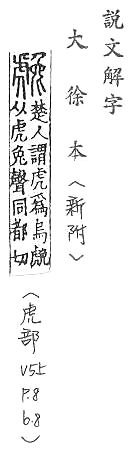 説文解字
大徐本〈新附〉
䖘
楚人謂虎爲烏䖘
从虎兔聲同都切
〈虎部 V5上 P.8 b.8〉